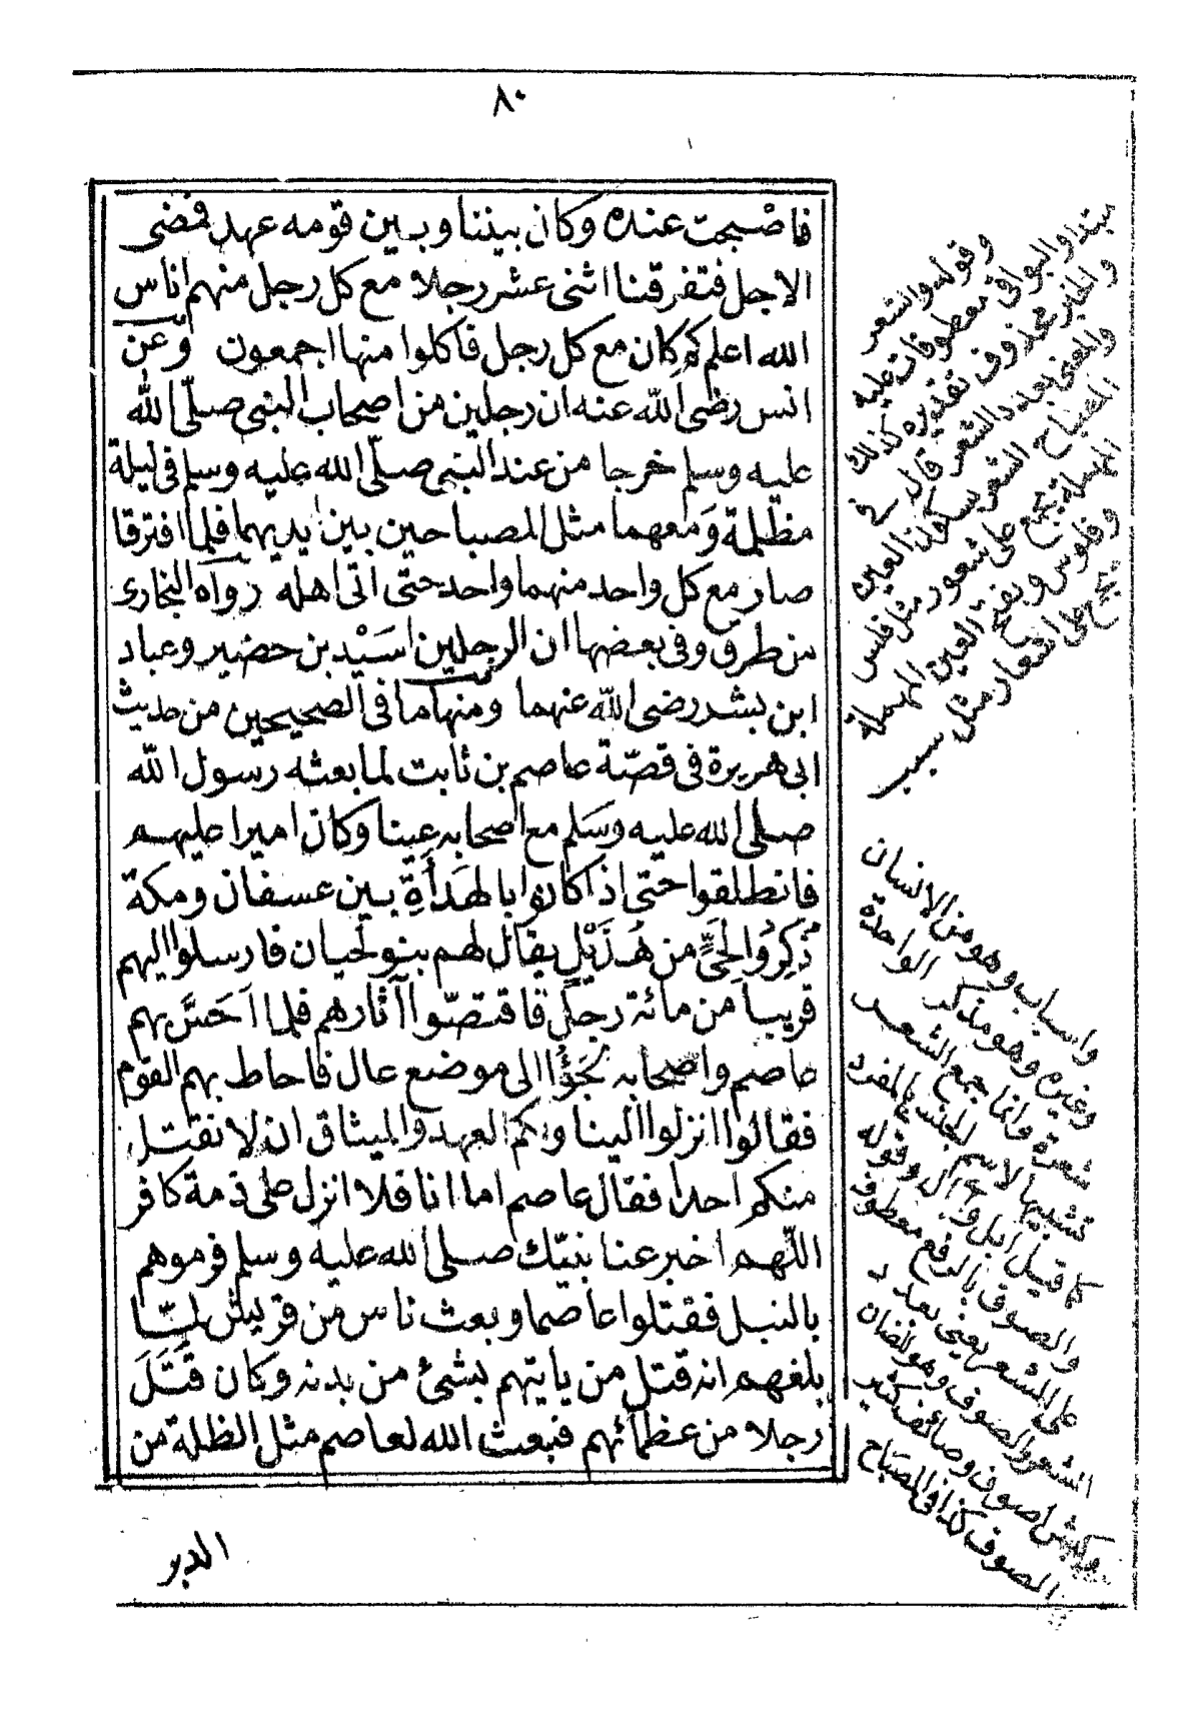 ٨٠
فاصْبحت عنده وكان بيننا وبين قومه عهد فمضى
الاجل فتفرقنا اثنى عشر رجلا مع كل رجل منهم اناس
الله اعلم كم كان مع كل رجل فاكلوا منها اجمعون وعن
انس رضى الله عنه ان رجلين من اصحاب النبى صلّى الله
عليه وسلم خرجا من عند النبى صلّى الله عليه وسلم فى ليلة
مظّلمة وَمعهما مثل المصباحين بين ايديهما فلما افترقا
صار مع كل واحد منهما واحد حتى اتى اهله رواه البخارى
من طرق وفى بعضها ان الرجلين اسَيْد بن حضير وعباد
ابن بشر رضى الله عنهما ومنها ما فى الصحيحين من حديث
ابى هريرة فى قصّة عاصم بن ثابت لما بعثه رسول الله
صلى الله عليه وسَلم مع اصحابه عينا وكان اميرا عليهم
فانطلقوا حتى اذا كانوا بالهَدأَةِ بين عسفان ومكة
ذُكِرُوا لِحَىٍّ من هُذَيْلٍ يقال لهم بنو لحيان فارسلوا اليهم
قريبا من مائة رجل فاقتصّوا آثارهم فلما احَسَّ بهم
عاصم واصحابه لجَؤُا الى موضع عال فاحاط بهم القوم
فقالوا انزلوا الينا ولكم العهد والميثاق ان لا نقتل
منكم احدا فقال عاصم اما انا فلا انزل على ذمة كافر
اللّهم اخبر عنا نبيّك صلى الله عليه وسلم فرموهم
بالنبل فقتلوا عاصما وبعث ناس من قريش لمّا
بلغهم انه قتل من ياتيهم بشئ من بدنه وكان قَتَلَ
رجلا من عظمائهم فبعث الله لعاصم مثل الظلة من
الدبر
وقوله والشعر
مبتدا والبواقى معطوفات عليه
والخبر محذوف تقديره كذلك
والمعنى بعدد الشعر قال فى
المصباح الشعر بسكون العين
المهملة يجمع على شعور مثل فلس
وفلوس وبفتح العين المهملة
يجمع على اشعار مثل سبب
واسباب وهو من الانسان
وغيره وهو مذكر الواحدة
شعرة وانما جمع الشعر
تشبيها لاسم الجنس بالمفرد
كما قيل ابل وآبال وقوله
والصوف بالرفع معطوف
على الشعر يعنى بعدد
الشعر والصوف وهو للضان
وكبش اصوف وصائف كثير
الصوف كذا فى المصباح